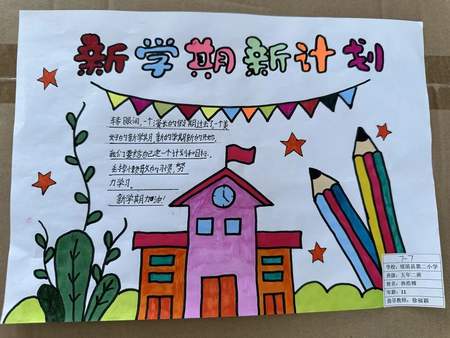 新学期新计划
转眼间，一个漫长的假期过去了，一个美
好的新学期，新的学期新的开始，
我们要给自己定一个计划和目标，
去找
力学习。
新学期加油！
7-7
学校：
县第二小学
班级：五年二班
姓名：
年龄：11
指导教师：徐